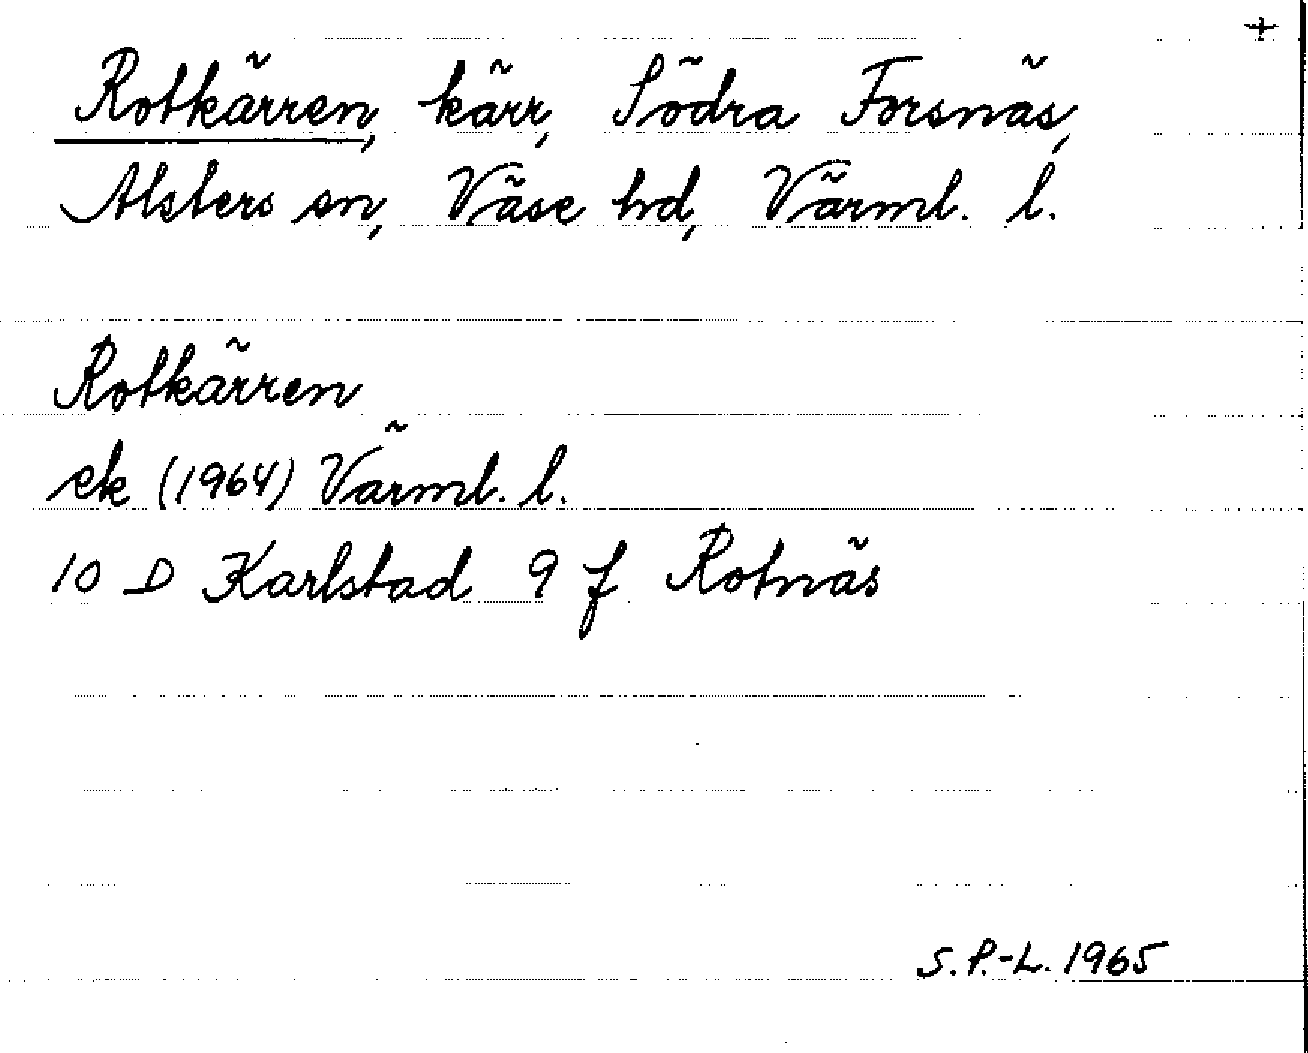 +
Rotkärren, kärr, Södra Forsnäs,
Alsters sn, Väse hd, Värml. l.
Rotkärren
ek (1964) Värml. l.
10 D Karlstad 9 f Rotnäs
S. P.-L. 1965